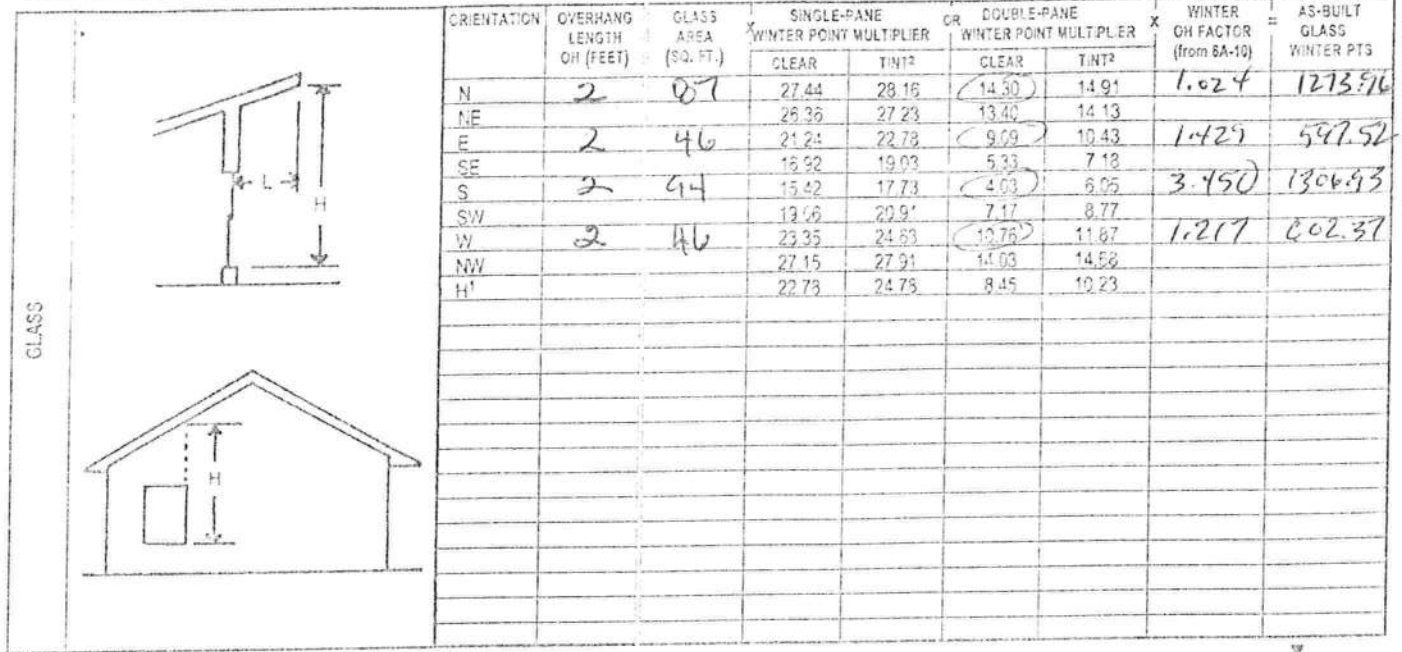 ORIENTATION OVERHANG LENGTH OH (FEET) GLASS AREA (SQ. FT.) X SINGLE-PANE WINTER POINT MULTIPLIER OR DOUBLE-PANE WINTER POINT MULTIPLIER X WINTER OH FACTOR (from 6A-10) = AS-BUILT GLASS WINTER PTS
CLEAR TINT² CLEAR TINT²
N 2 87 27.44 28.16 14.30 14.91 1.024 1273.96
NE 26.36 27.23 13.40 14.13
E 2 46 21.24 22.78 9.09 10.43 1.429 597.52
SE 16.92 19.03 5.33 7.18
S 2 94 15.42 17.73 4.03 6.05 3.450 1306.93
SW 20.91 7.17 8.77
W 2 46 23.35 24.63 10.76 11.87 1.217 602.37
NW 27.15 27.91 14.03 14.58
H¹ 22.73 24.78 8.45 10.23
L
H
H
GLASS